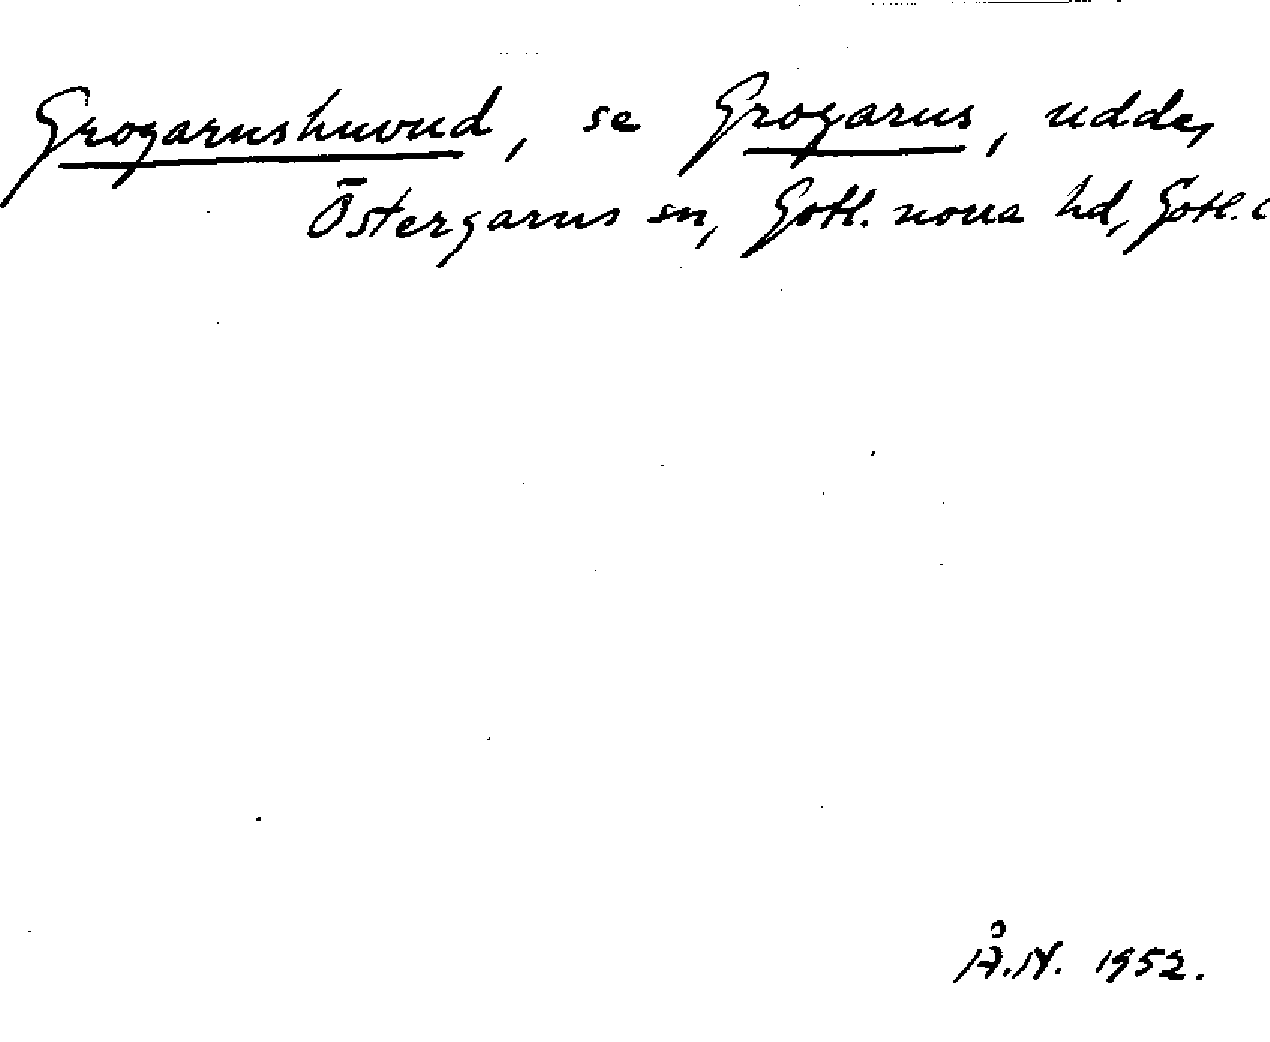 Grogarnshuvud, se Grogarns, udde,
Östergarns sn, Gotl. norra hd, Gotl.
Å.N. 1952.